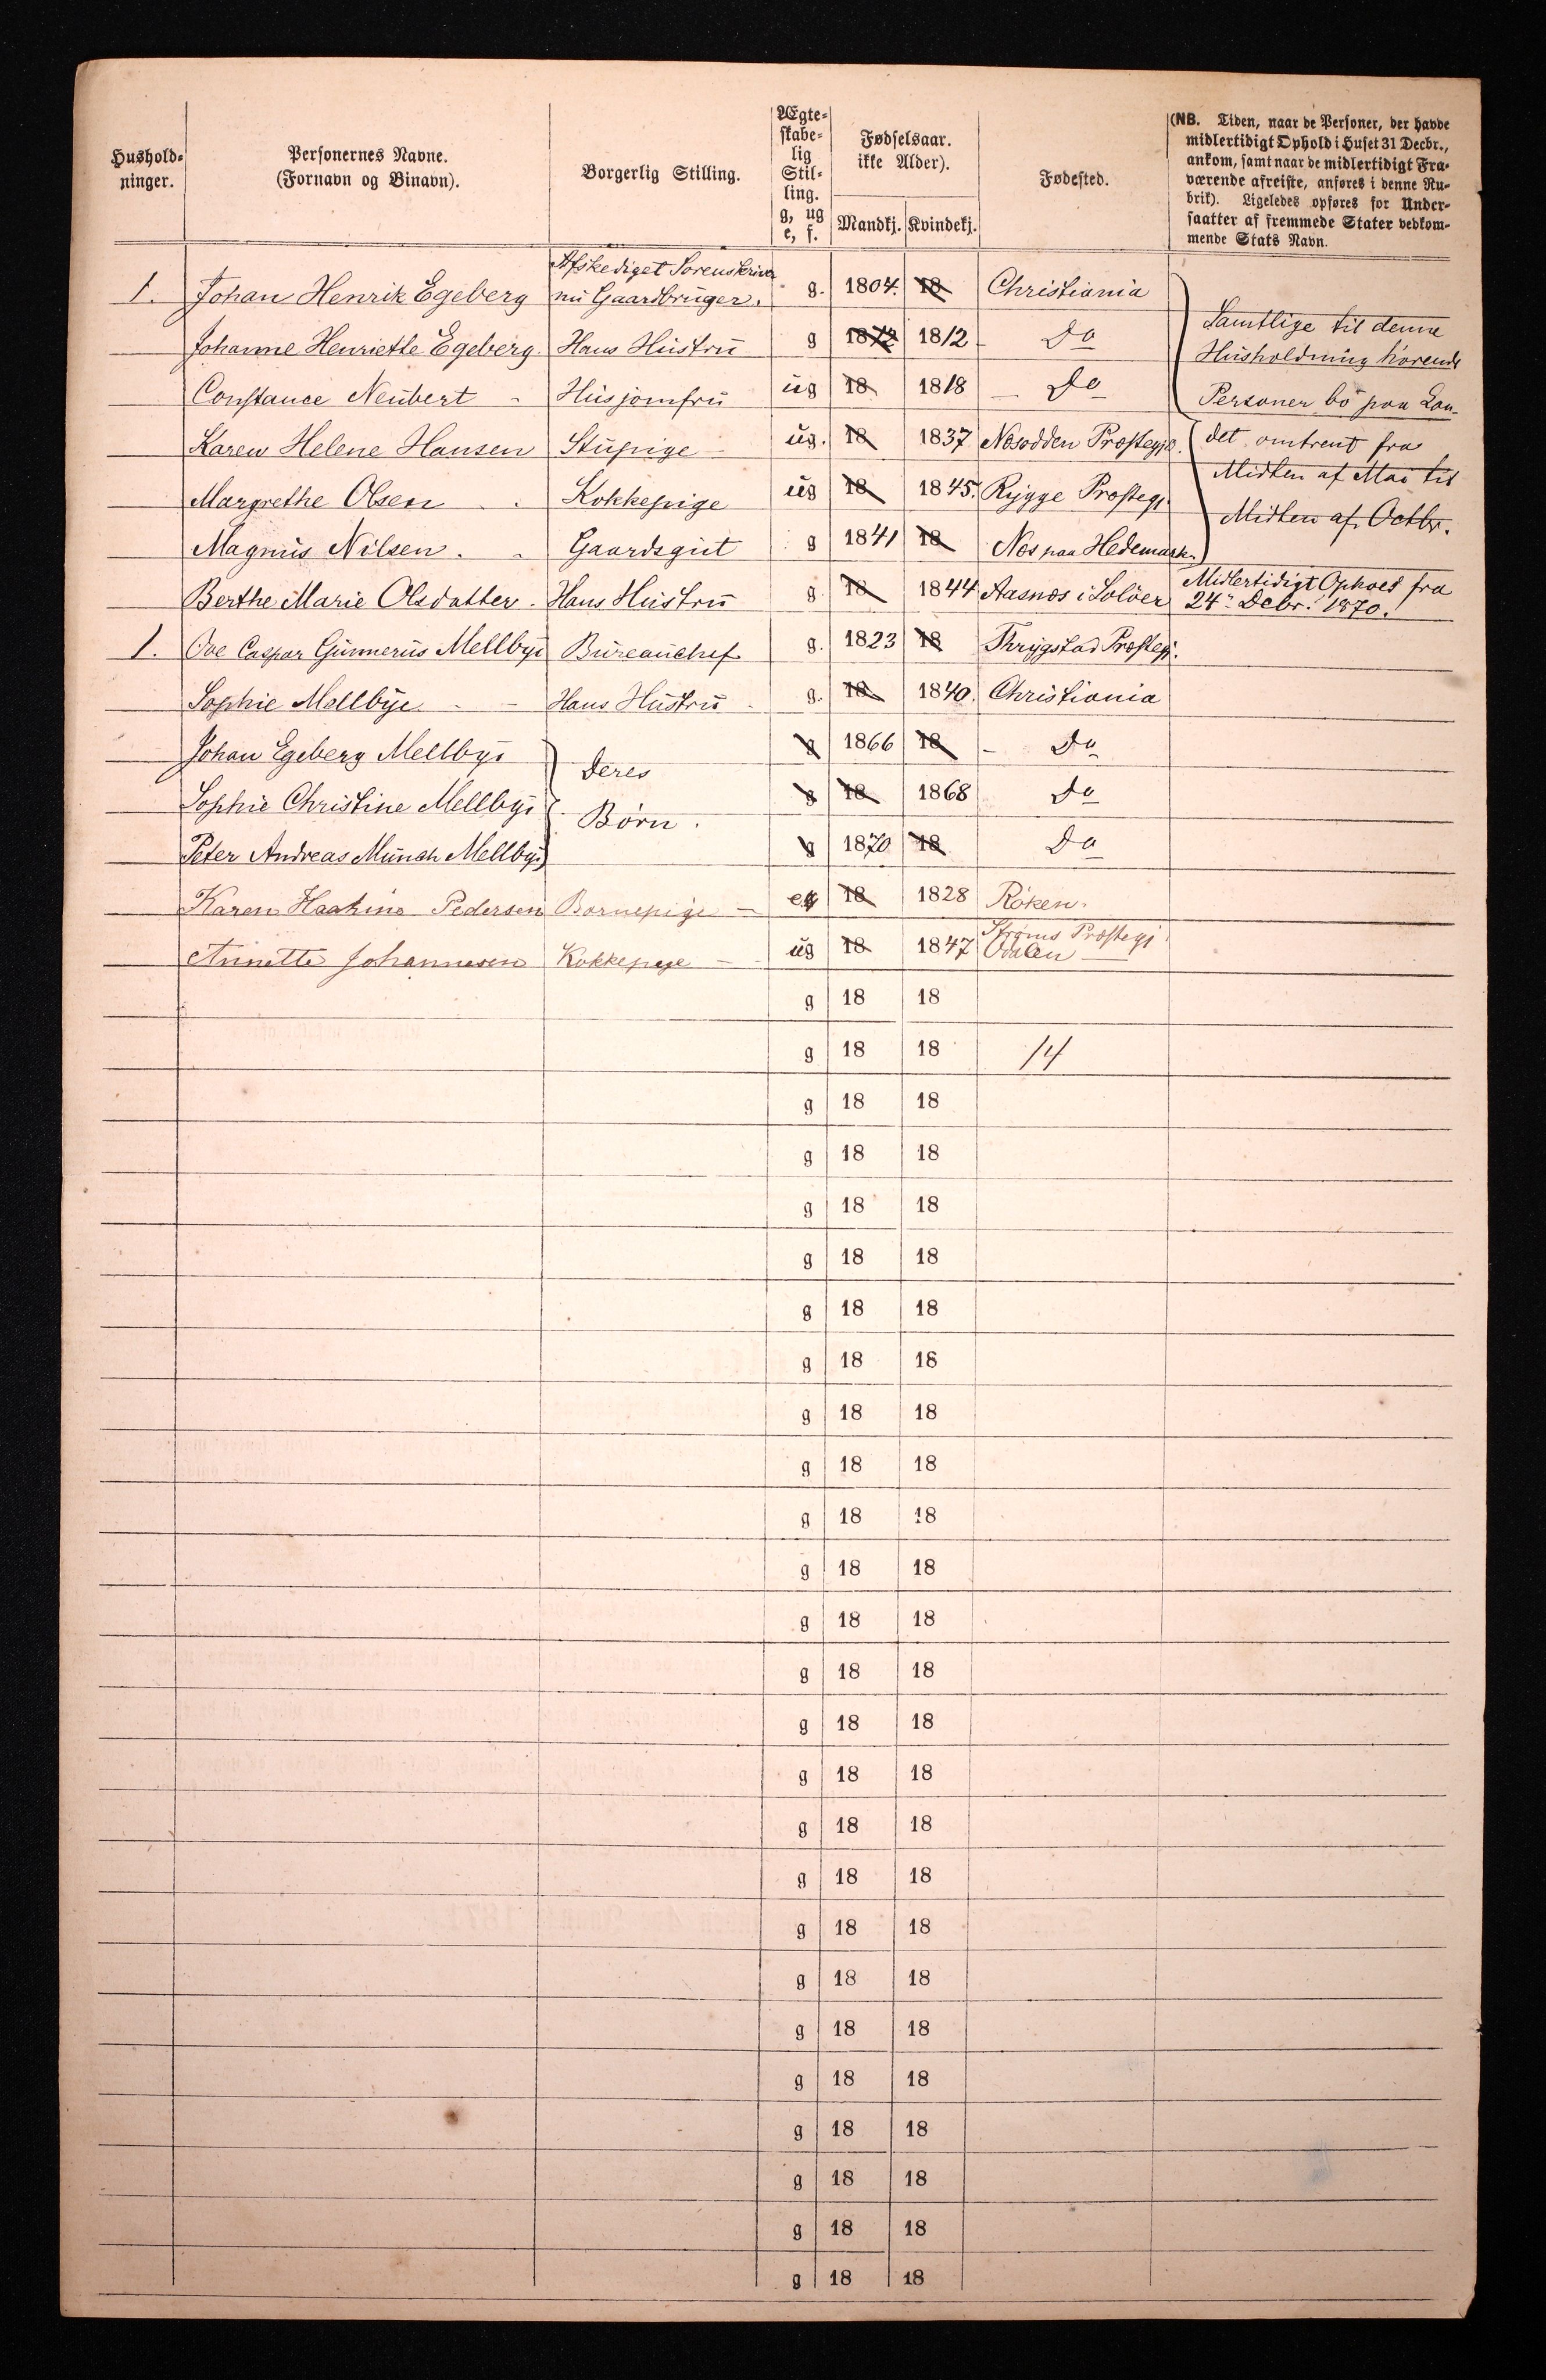 Hushold-
ninger.
Personernes Navne.
(Fornavn og Binavn).
Borgerlig Stilling.
Ægte-
skabe-
lig
Stil-
ling.
g, ug
e, f.
Fødselsaar.
ikke Alder).
Mandkj. Kvindekj.
Fødested.
(NB. Tiden, naar de Personer, der havde
midlertidigt Ophold i Huset 31 Decbr.,
ankom, samt naar de midlertidigt Fra-
værende afreiste, anføres i denne Ru-
brik). Ligeledes opføres for Under-
saatter af fremmede Stater vedkom-
mende Stats Navn.
Afskediget Sorenskriver
1. Johan Henrik Egeberg nu Gaardbruger. g. 1804. 18 Christiania
Johanne Henriette Egeberg. Hans Hustru g 1812 1812 - Do
Constance Neubert - Husjomfru ug 18 1818 - Do
Karen Helene Hansen Stupige - ug. 18 1837 Nesodden Præstegjd.
Margrethe Olsen . . Kokkepige ug 18 1845. Rygge Præstegj.
Magnus Nilsen. - Gaardsgut g 1841 18 Næs paa Hedemark.
Samtlige til denne
Husholdning hørende
Personer bo paa Lan-
det omtrent fra
Midten af Mai til
Midten af Octbr.
Berthe Marie Olsdatter. Hans Hustru g 18 1844 Aasnæs i Solöer Midlertidigt Ophold fra
24de Debr. 1870.
1. Ove Caspar Gunnerius Mellbye Bureauchef g. 1823 18 Thrygstad Præstegj.
Sophie Mellbye - - Hans Hustru - g. 18 1840. Christiania
Johan Egeberg Mellbye g 1866 18 - Do
Deres
Sophie Christine Mellbye g 18 1868 Do
Børn.
Peter Andreas Munch Mellbye g 1870 18 Do
Karen Haakine Pedersen Barnepige - e g 18 1828 Røken.
Strøms Præstegj
Annette Johannesen Kokkepege - ug 18 1847 Odalen
g 18 18
g 18 18 14
g 18 18
g 18 18
g 18 18
g 18 18
g 18 18
g 18 18
g 18 18
g 18 18
g 18 18
g 18 18
g 18 18
g 18 18
g 18 18
g 18 18
g 18 18
g 18 18
g 18 18
g 18 18
g 18 18
g 18 18
g 18 18
g 18 18
g 18 18
g 18 18